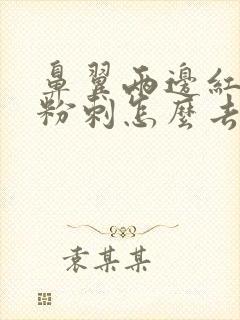 鼻翼兩邊紅
粉刺怎麼去
袁某某